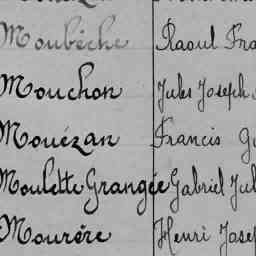 Moubêche Raoul Fra
Mouchon Jules Joseph
Mouézan Francis Gu
Moulette Grangée Gabriel Jul
Mourére Henri Josep